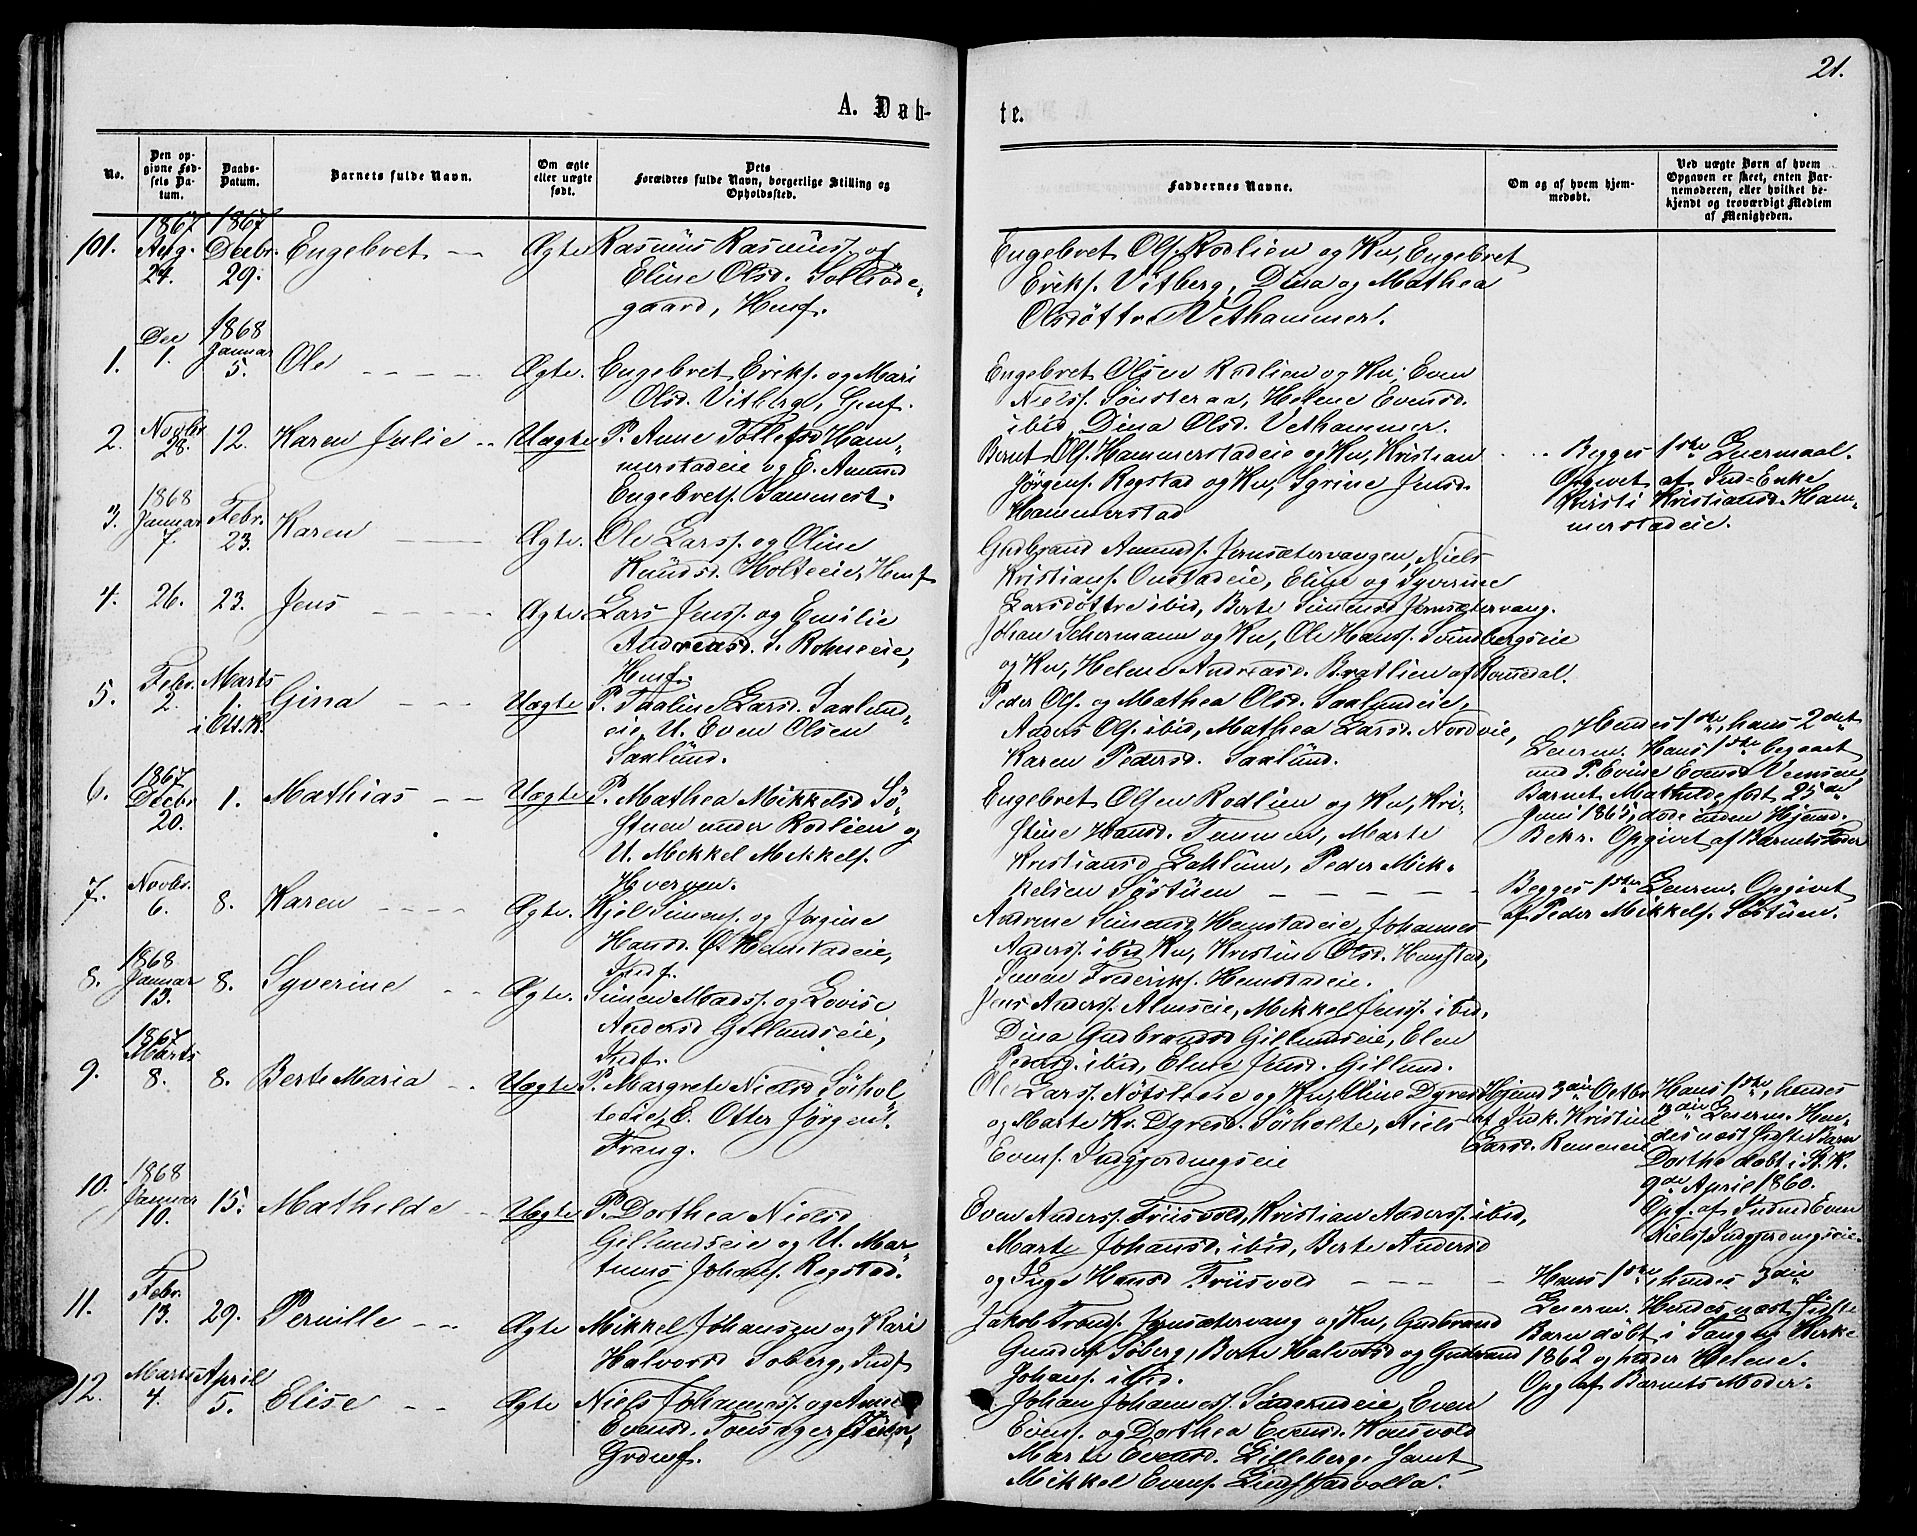 21.
A. Døb-
te.
No.
Den op-
givne Fød-
sels Da-
tum.
Daabs-
Datum.
Barnets fulde Navn.
Om ægte
eller uægte
født.
Dets
Forældres fulde Navn, borgerlige Stilling og
Opholdssted.
Faddernes Navne.
Om og af hvem hjem-
medøbt.
Ved uægte Børn af hvem
Opgaven er skeet, enten Bar-
nemoderen, eller hvilket be-
kjendt og troværdigt Medlem
af Menigheden.
101.
1867
Aug.
24.
1867
Decbr.
29.
Engebret
Ægte
Rasmus Rasmuss. og
Eline Olsd. Sollióde-
gaard, Hemf.
Engebret Ols. Rodlien og Kv, Engebret
Eriks. Vitberg, Dina og Mathea
Olsdøttre Vethammer.
1.
Dec
1.
1868
Januar
5.
Ole
Ægte.
Engebret Eriks. og Mari
Olsd. Vitberg, Gmf.
Engebret Olsen Rodlien og Kv. Even
Niels. Sønsteraa, Helene Evensd.
ibid Dina Olsd. Vethammer.
2.
Novbr
28.
12.
Karen Julie
Uægte
P. Anne Tollefsd Ham-
merstadeie og E. Amund
Engebrets. Sammest.
Bernt Ols. Hammerstadeie og Kv, Kristian
Jørgens. Rogstad og Kv, Syrine Jensd.
Hammerstad
Begges 1ste Leiermaal.
Opgivet af Ind-Enke
Kirsti Kristiansd. Ham-
merstadeie.
3.
1868
Januar
7.
Febr.
23.
Karen
Ægte.
Ole Larss. og Oline
Knudsd. Holteeie, Hemf
Gudbrand Amunds. Jernsætervangen, Niels
Kristians. Onstadeie, Eline og Syverine
Larsdøttre ibid, Berte Simensd Jernsætervang.
4.
26.
23.
Jens
Ægte.
Lars Jenss. og Emilie
Andreasd. S. Rohneeie,
Hemf.
Johan Schermann og Kv, Ole Hanss. Svindbergseie
og Kv, Helene Andreasd. Bratlien af Romedal.
5.
Febr.
2.
Marts
1.
i Ott.K.
Gina
Uægte
P. Pauline Larsd. Saxlund-
eie, U. Even Olsen
Saxlund.
Peder Ols. og Mathea Olsd. Saxlundeie,
Anders Ols. ibid, Mathea Larsd. Nordvie,
Karen Pedersd. Saxlund.
Hendes 1ste, hans 2det
Leierm. Hans 1ste begaaet
med P. Evine Evensd Veensen,
Barnet Mathilde født 25de
Juni 1865, døde inden Hjemd.
Bekr. Opgivet af Barnets Fader
6.
1867
Decbr
20.
1.
Mathias
Uægte
P. Mathea Mikkelsd Sø-
stuen under Rodlien og
U. Mikkel Mikkels.
Hverven.
Engebret Olsen Rodlien og Kv, Kri-
stine Hansd. Tommen, Marte
Kristiansd Saxlund, Peder Mik-
kelsen Søstuen
Begges 1ste Leierm. Opgivet
af Peder Mikkels. Søstuen.
7.
Novbr.
6.
8.
Karen
Ægte.
Kjøl Simens. og Jørgine
Hansd. Ø. Hemstadeie,
Indf.
Andrine Simensd Hemstadeie, Johannes
Anderss. ibid Kv, Kristine Olsd. Hemstad,
Simen Frederiks. Hemstadeie.
8.
1868
Januar
13.
8.
Syverine
Ægte.
Simen Madss. og Lovise
Andersd Gillundseie,
Indf.
Jens Anderss. Almseie, Mikkel Jenss. ibid,
Dina Gudbrandsd Gillundseie, Elen
Pedersd. ibid, Eline Jensd. Gillund.
9.
1867
Marts
8.
8.
Berte Maria
Uægte
P. Margrete Nielsd Sørhol-
teeie, E. Otter Jørgens.
Frang.
Ole Larss. Nøtsleeie og Kv, Oline Dyresd
og Marte Kv. Dyresd. Sørholte, Niels
Evens. Indgjerdingseie
Hjemd 3die Octbr
af Indk. Kristine
Larsd. Rommeie
Hans 1ste, hendes
3die Leierm. Hen-
des næst sidste Barn
Dorthe døbt i St.K.
9de April 1860.
Opg. af Indmd Even
Niels. Indgjerdingseie.
10.
1868
Januar
10.
15.
Mathilde
Uægte
P. Dorthea Nielsd
Gillundseie og U. Mar-
tinus Johans. Rogstad.
Even Anderss. Friisvold, Kristian Anderss. ibid,
Marte Johansd. ibid, Berte Andersd
og Inge Hansd Friisvold
Hans 1ste, hendes 3die
Leierm. Hendes næst sidste
Barn døbt i Tangen Kirke
1862 og heder Helene.
Opg af Barnets Moder.
11.
Febr.
13.
29.
Pernille
Ægte
Mikkel Johansen og Kari
Halvorsd Søberg, Indf
Jakob Frons. Jernsætervang og Kv, Gudbrand
Gunders. Søberg, Berte Halvorsd og Gudbrand
Johans. ibid.
12.
Marts
4.
April
5.
Elise
Ægte
Niels Johanness. og Anne
Evensd. Tonsager
Grdmf.
Johan Johanness. Sønderudeie, Even
Evens. og Dorthea Evensd. Kausvold
Marte Evensd. Lilleberg, samt
Mikkel Evens. Lindstadvolla.